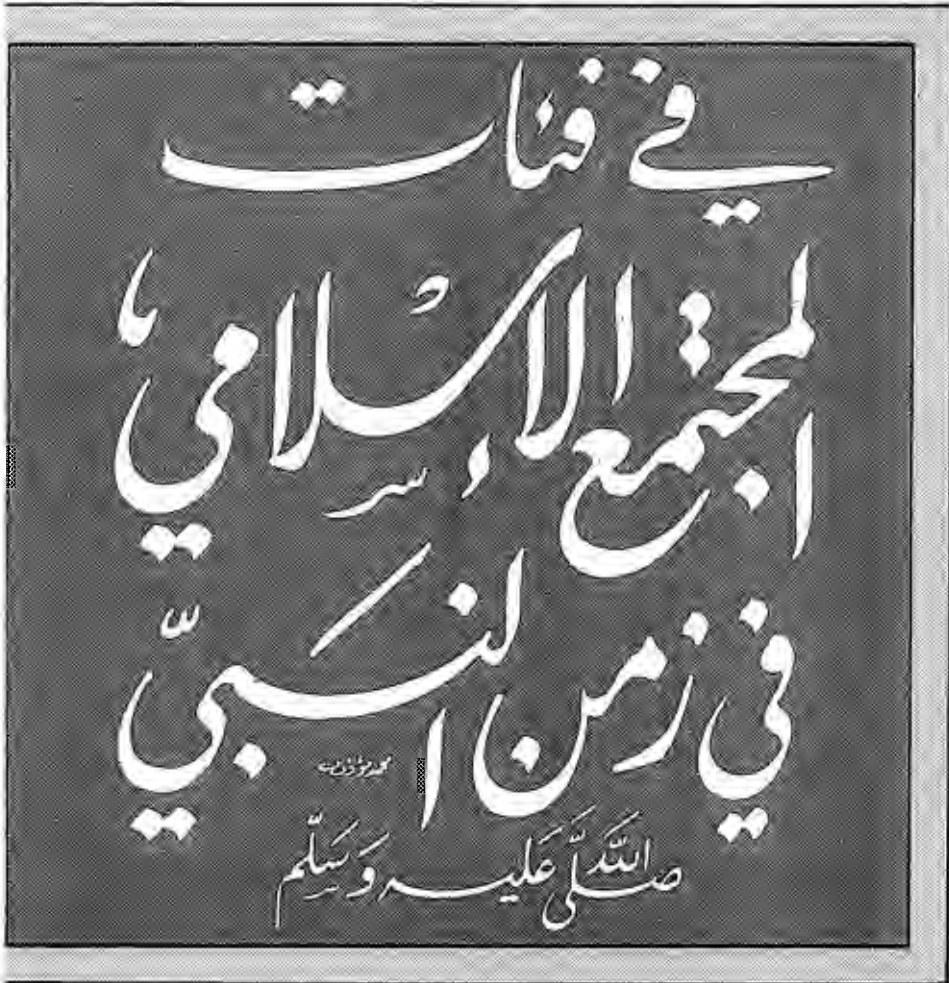 في فئات
المجتمع الإسلامي
في زمن النبيّ
صلّى الله عليه وسلّم